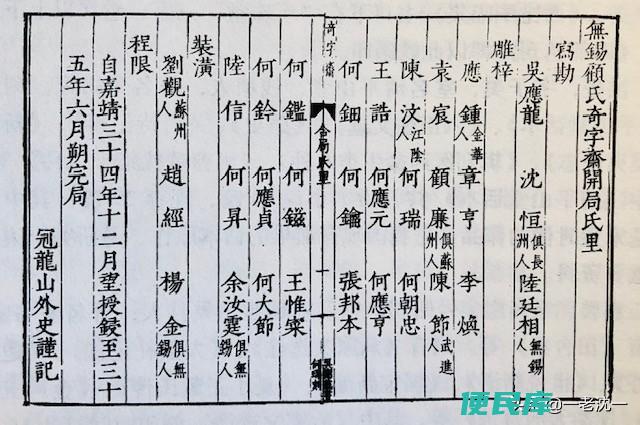 無錫顧氏奇字齋開局氏里
寫勘
吳應龍 沈恒俱長洲人 陸廷相無錫人
雕梓
應鍾金華人 章亨 李煥
袁宸 顧廉俱蘇州人 陳節武進人
陳汶江陰人 何瑞 何朝忠
王誥 何應元 何應亨
何鈿 何鑰 張邦本
奇字齋
合局氏里
何鑑 何鎡 王惟寀
何鈴 何應貞 何大節
陸信 何昇 余汝霆俱無錫人
裝潢
劉觀蘇州人 趙經 楊金俱無錫人
程限
自嘉靖三十四年十二月望授鋟至三十
五年六月朔完局
冠龍山外史謹記
@一老沈一
便民库